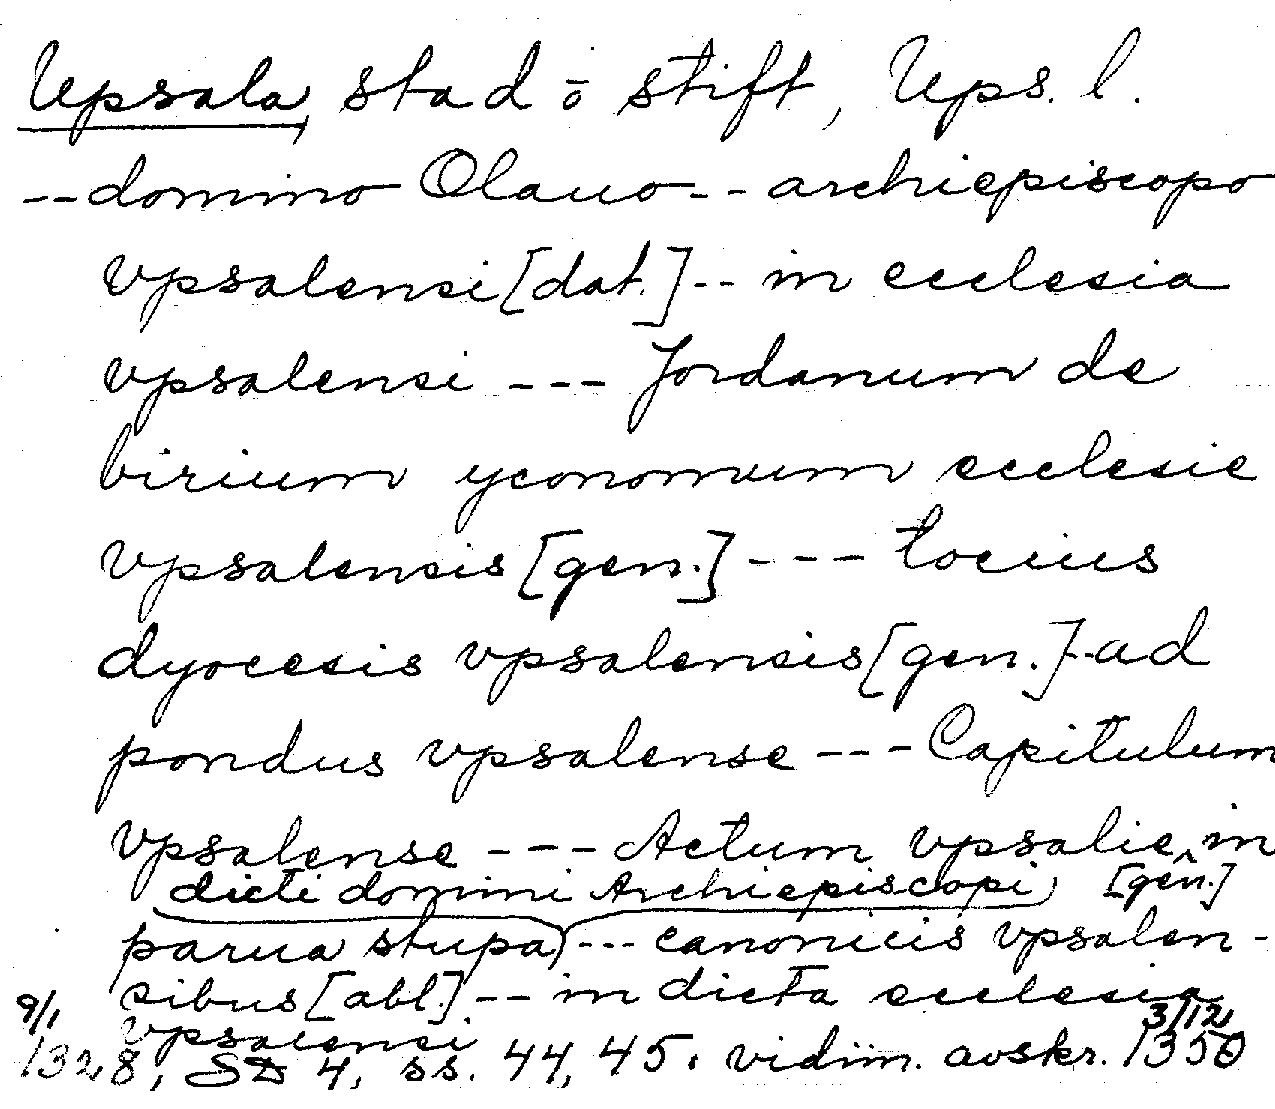 Upsala, stad o stift, Ups. l.
-- domino Olauo -- archiepiscopo
vpsalensi [dat.] -- in ecclesia
vpsalensi --- Jordanum de
birium yconomum ecclesie
vpsalensis [gen.] --- tocius
dyocesis vpsalensis [gen.] -- ad
pondus vpsalense --- Capitulum
vpsalense --- Actum vpsalie in
dicti domini Archiepiscopi [gen.]
parua stupa --- canonicis vpsalen-
sibus [abl.] -- in dicta ecclesia
vpsalensi
9/1 3/12
1328, SD 4, ss. 44, 45. vidim. avskr. 1350